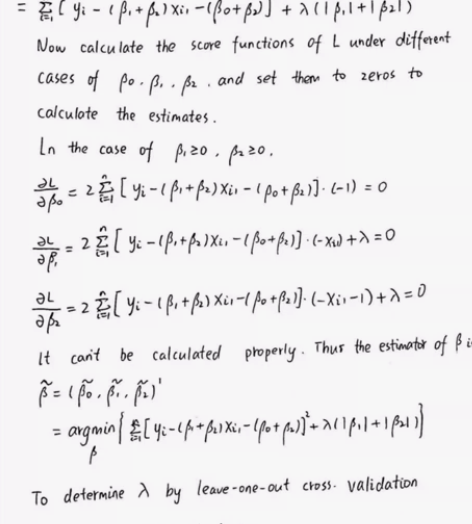 = Σ_{i=1}^{n} [ yi - (β₁+β₂) Xi₁ - (β₀+β₂)]² + λ(|β₁|+|β₂|)
Now calculate the score functions of L under different
cases of β₀. β₁. β₂. and set them to zeros to
calculate the estimates.
In the case of β₁≥0. β₂≥0.
∂L/∂β₀ = 2 Σ_{i=1}^{n} [ yi - (β₁+β₂) Xi₁ - (β₀+β₂)]·(-1) = 0
∂L/∂β₁ = 2 Σ_{i=1}^{n} [ yi - (β₁+β₂) Xi₁ - (β₀+β₂)]·(-Xi₁) + λ = 0
∂L/∂β₂ = 2 Σ_{i=1}^{n} [ yi - (β₁+β₂) Xi₁ - (β₀+β₂)]·(-Xi₁-1) + λ = 0
It can't be calculated properly. Thus the estimator of β i
β̃ = (β̃₀. β̃₁. β̃₂)'
= argmin_β { Σ_{i=1}^{n} [yi - (β₁+β₂) Xi₁ - (β₀+β₂)]² + λ(|β₁|+|β₂|) }
To determine λ by leave-one-out cross. validation